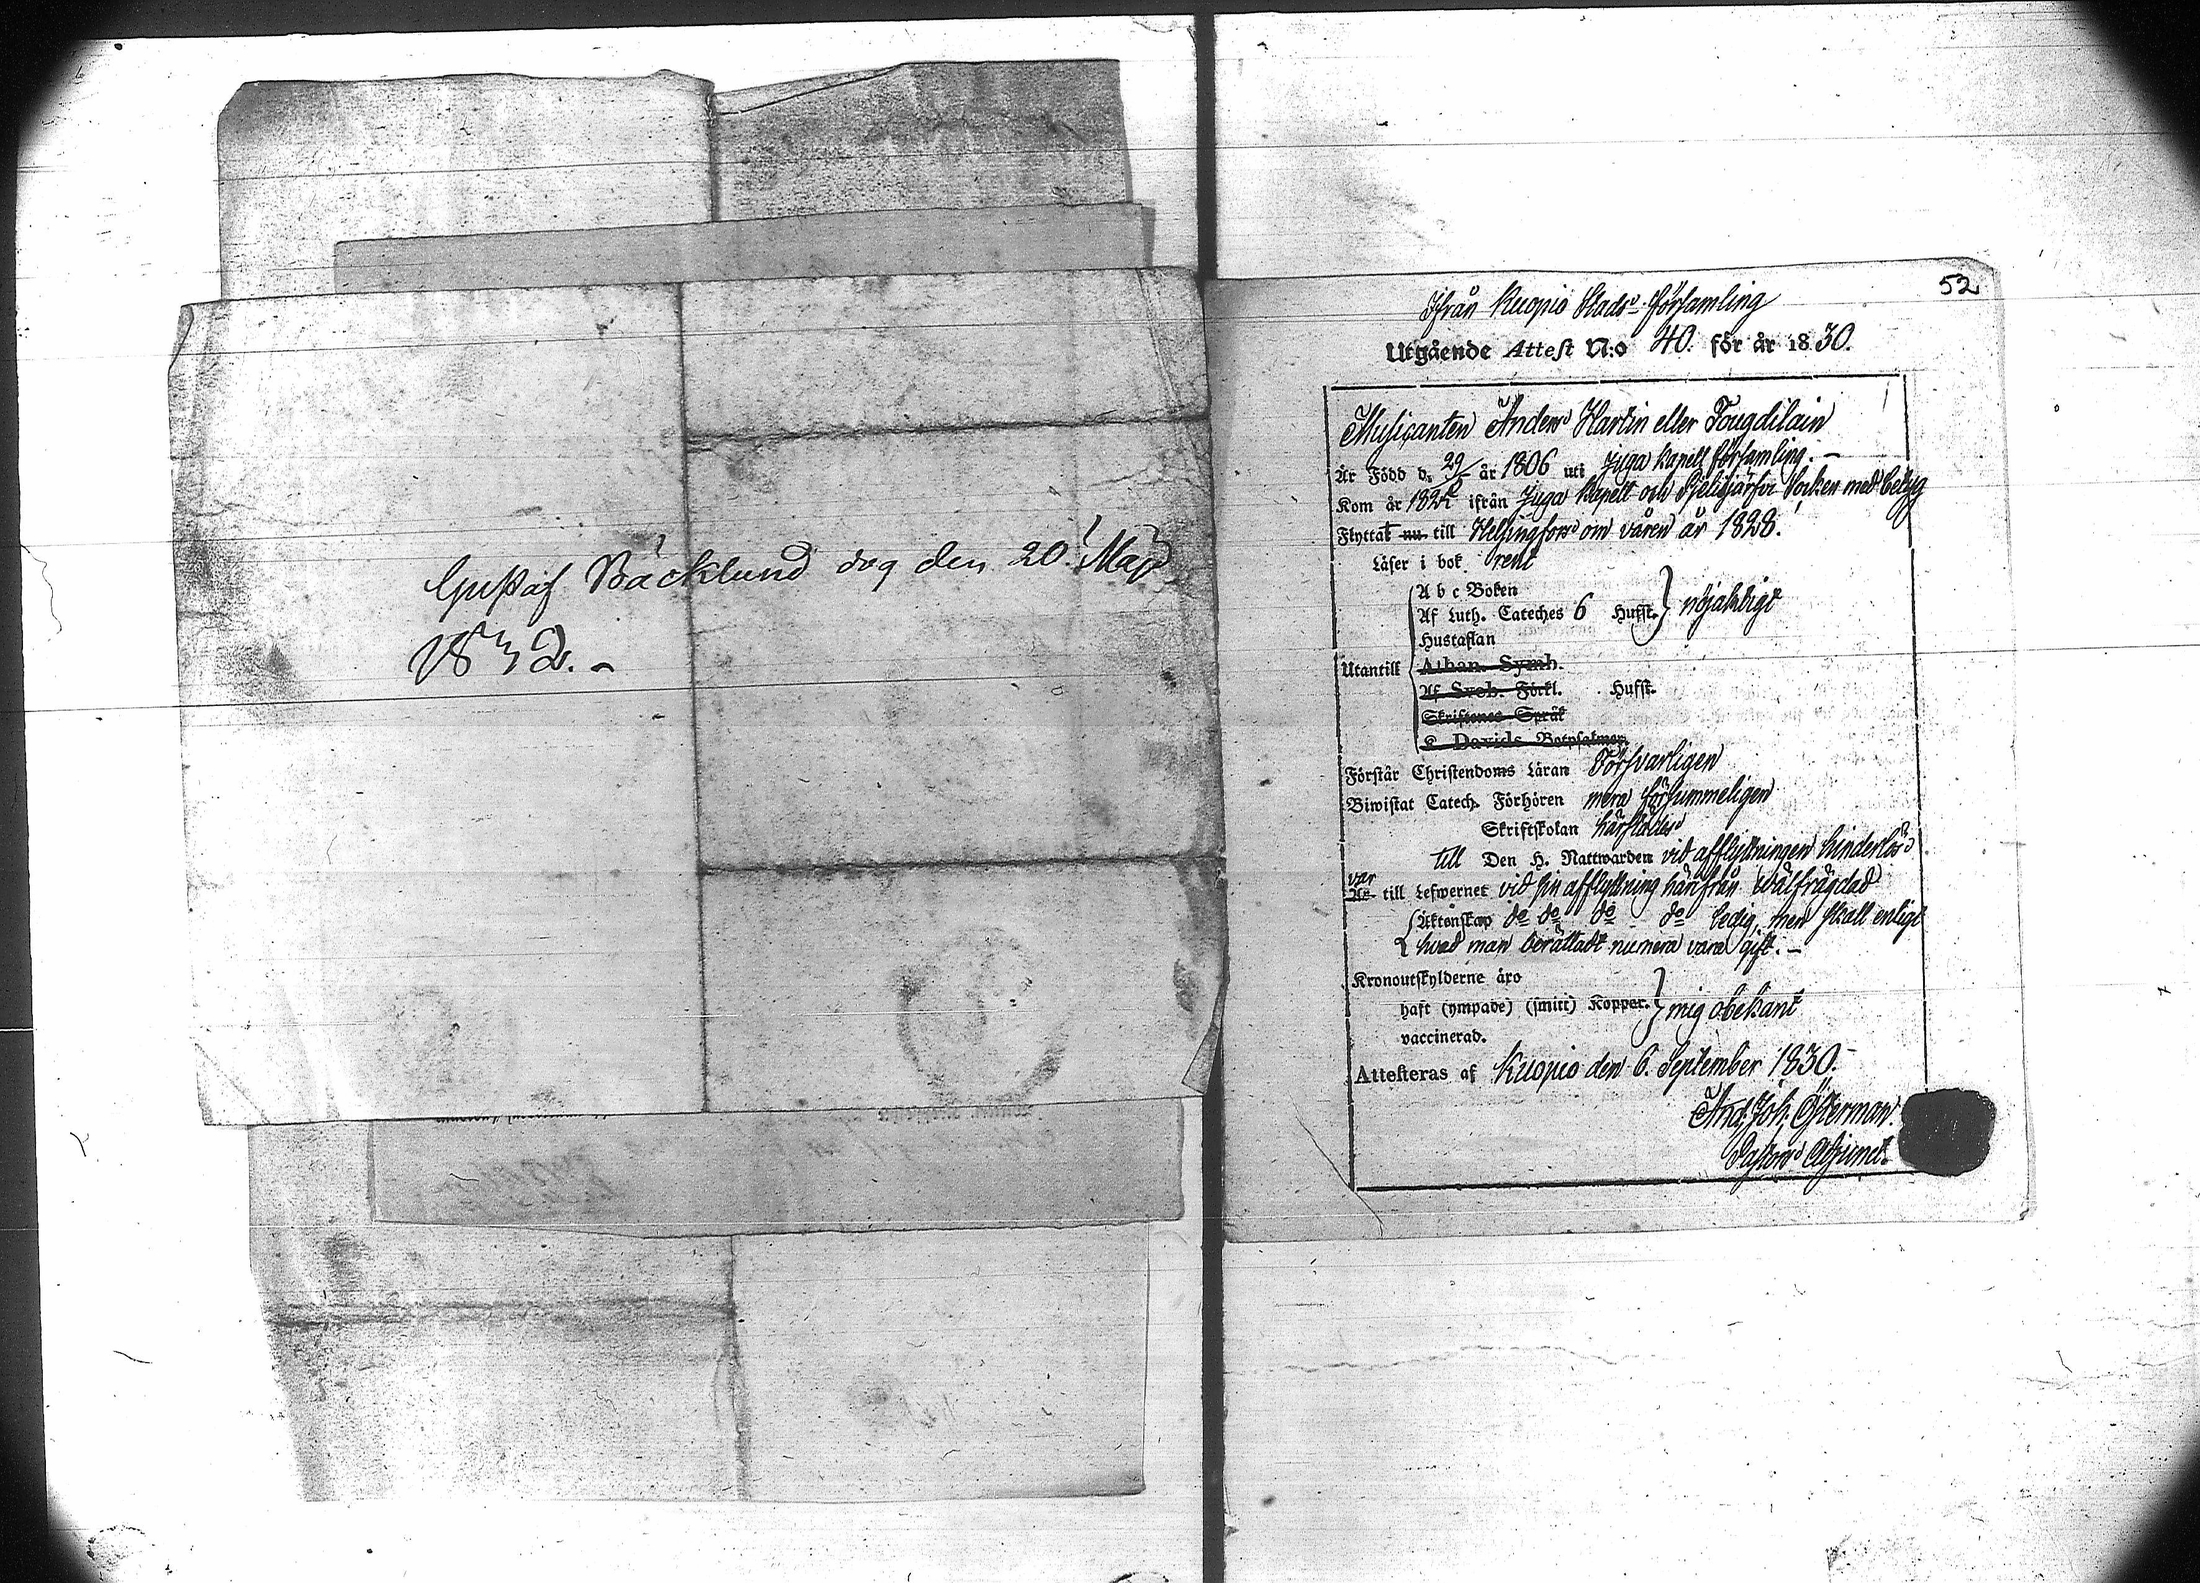 Gustaf Bäcklund dog den 20 Maji
1832. -
52
Ifrån Kuopio Stads-församling
Utgående Attest N:o 40. för år 1830.
Musicanten Anders Hartin eller
Är Född d. 29/ år 1806 uti Juga kapell församling. -
Kom år 182 ifrån Juga Kapell och Pjelisjärfvi Socken med betyg
Flyttat nu till Helsingfors om våren år 1828.
Läser i bok rent
A b c Boken
Af Luth. Cateches 6 Hufst. } nöjaktigt
Hustaflan
Utantill
Athan. Symb.
Af Sveb. Förkl. Hufst.
Skriftenes Språk
K. Davids Botpsalmer.
Förstår Christendoms Läran Försvarligen
Biwistat Catech. Förhören mera försummeligen
Skriftskolan härstädes
till Den H. Nattwarden vid afflyttningen hinderlös
var
Är till Lefwernet vid sin afflyttning härifrån wälfrägdad
Äktenskap do do do do ledig, men skall enligt
hvad man berättadt numera vara gift. -
Kronoutskylderne äro
haft (ympade) (smitt) Koppor. } mig obekant
vaccinerad.
Attesteras af Kuopio den 6. September 1830.
And. Joh. Österman.
Pastors Adjunct.